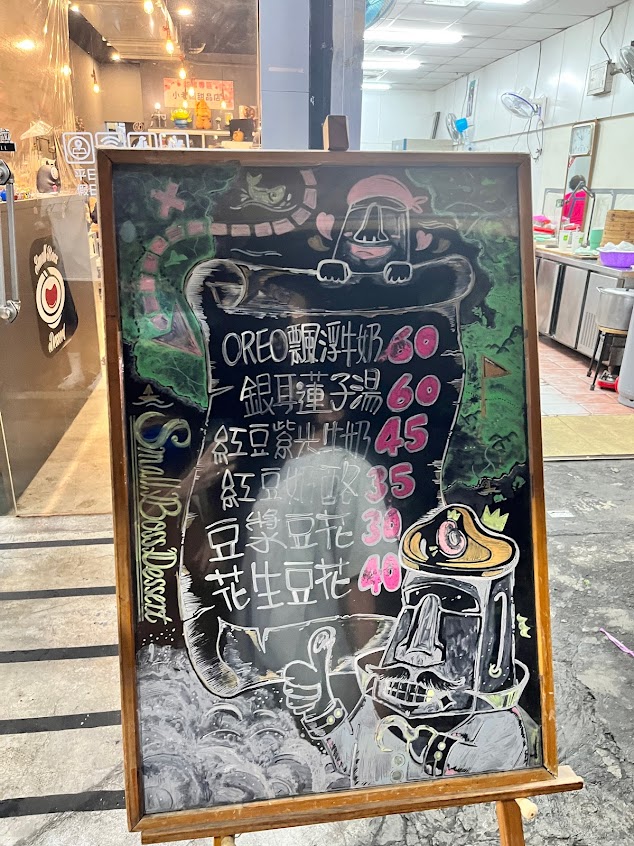 小 甜品店
平日
假日
OREO飄浮牛奶 60
銀耳蓮子湯 60
紅豆紫米牛奶 45
紅豆奶酪 35
豆漿豆花 30
花生豆花 40
Small Boss Dessert